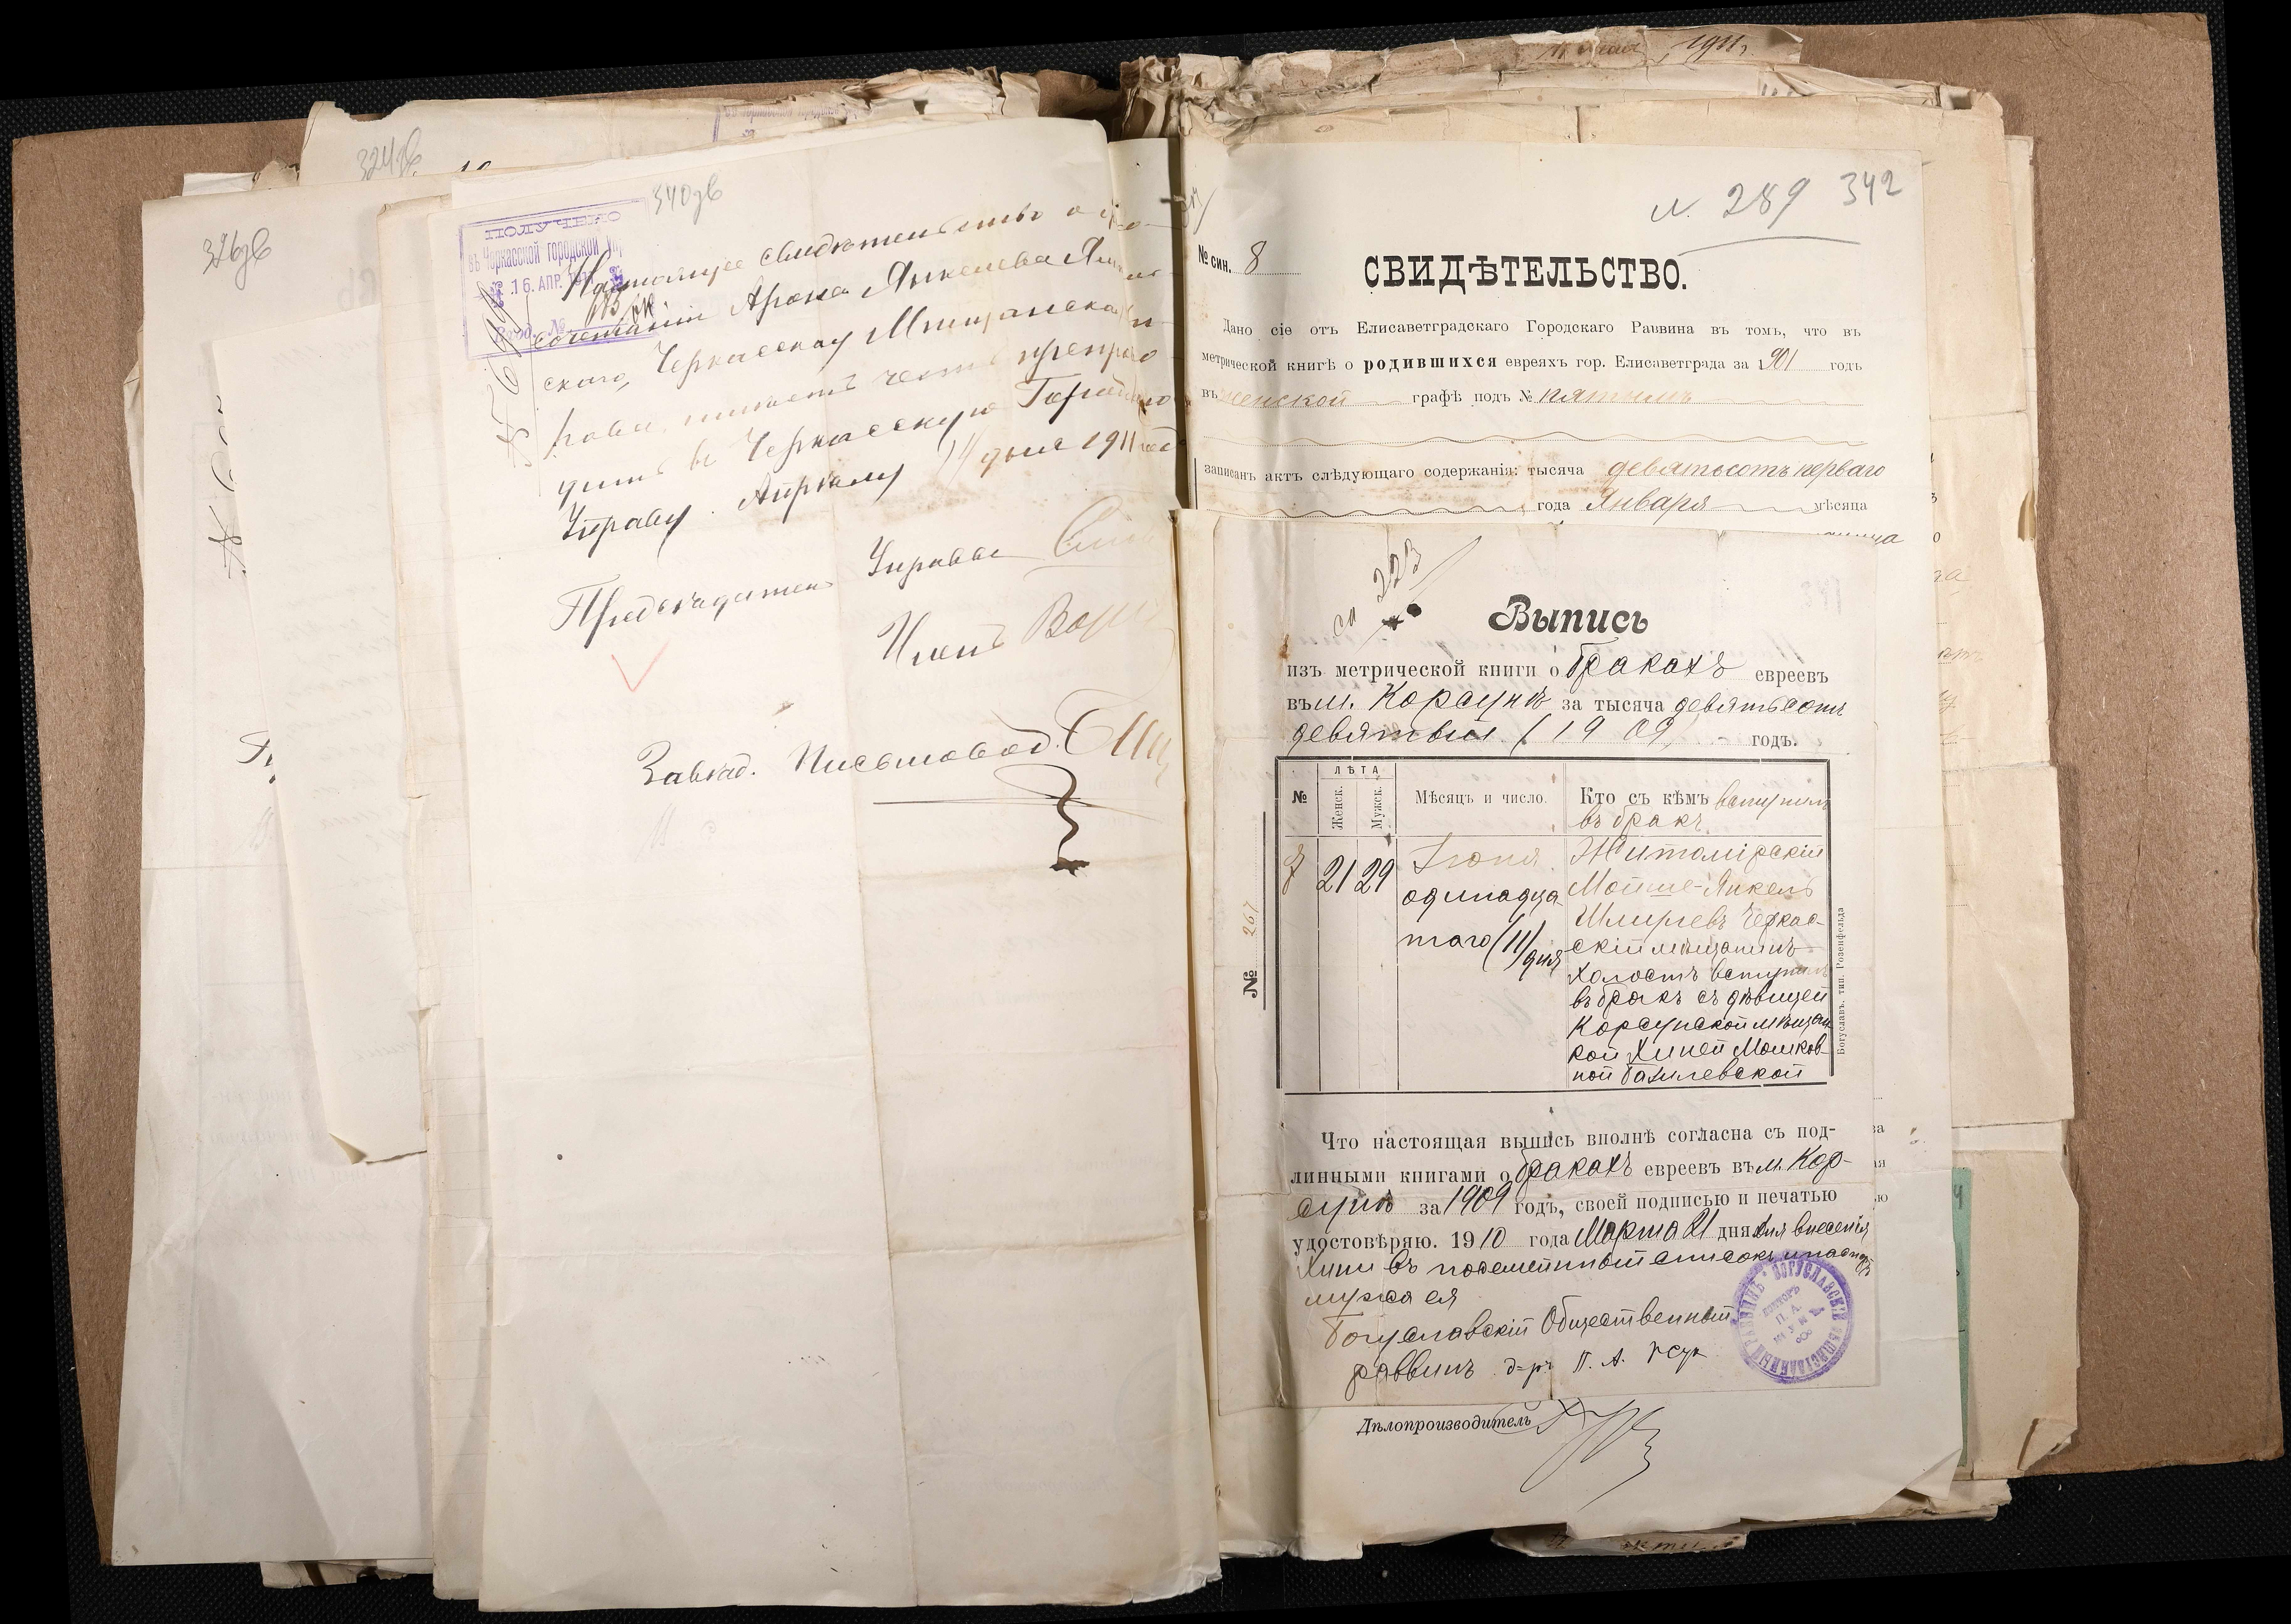 324зв
326зв
340зв
ПОЛУЧЕНО
въ Черкасской Городской Упр
16. АПР. 1911
Вход. №
Настоящее свидетельство о бра-
сочетании Арона Янкелева
скаго, Черкасскому Мещанская Уп-
рава имеетъ честь препрово-
дить въ Черкасскую Городскую
Управу. Апреля 14 дня 1911 года
Председатель Управы
Членъ
Завѣд. Письмовод.
1911 г.
N. 289 342
№ син. 8
СВИДѢТЕЛЬСТВО.
Дано сіе отъ Елисаветградскаго Городскаго Раввина въ томъ, что въ
метрической книгѣ о родившихся евреяхъ гор. Елисаветграда за 1901 годъ
въ женской графѣ подъ № пятымъ
записанъ актъ слѣдующаго содержанія: тысяча девятьсотъ перваго
года Января мѣсяца
223
Выпись
изъ метрической книги о бракахъ евреевъ
въ м. Корсунѣ за тысяча девятьсотъ
девятый /1909 годъ.
№
ЛѢТА
Женск.
Мужск.
Мѣсяцъ и число.
Кто съ кѣмъ вступилъ
въ бракъ
7 21 29
Іюня
одинадца-
таго (11) дня
Житомірскій
Мойше-Янкель
Шмулевъ Черкас-
скій мѣщанинъ
холостъ вступилъ
въ бракъ съ дѣвицей
Корсунской мѣщан
кой Хиней Мошков-
ной Базилевской
№ 267
Богуславъ. тип. Розенфельда
Что настоящая выпись вполнѣ согласна съ под-
линными книгами о бракахъ евреевъ въ м. Кор-
сунѣ за 1909 годъ, своей подписью и печатью
удостовѣряю. 1910 года Марта 21 дня для внесенія
Хини въ посемейный списокъ и паспортъ
мужа ея
Богуславскій Общественный
раввинъ д-ръ П. А.
БОГУСЛАВСКІЙ ОБЩЕСТВЕННЫЙ РАВВИНЪ
ДОКТОРЪ
П. А.
Дѣлопроизводитель